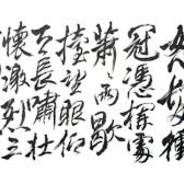 怒髮衝
冠憑欄處
蕭々雨歇
擡望眼仰
天長嘯壯
懷激烈三